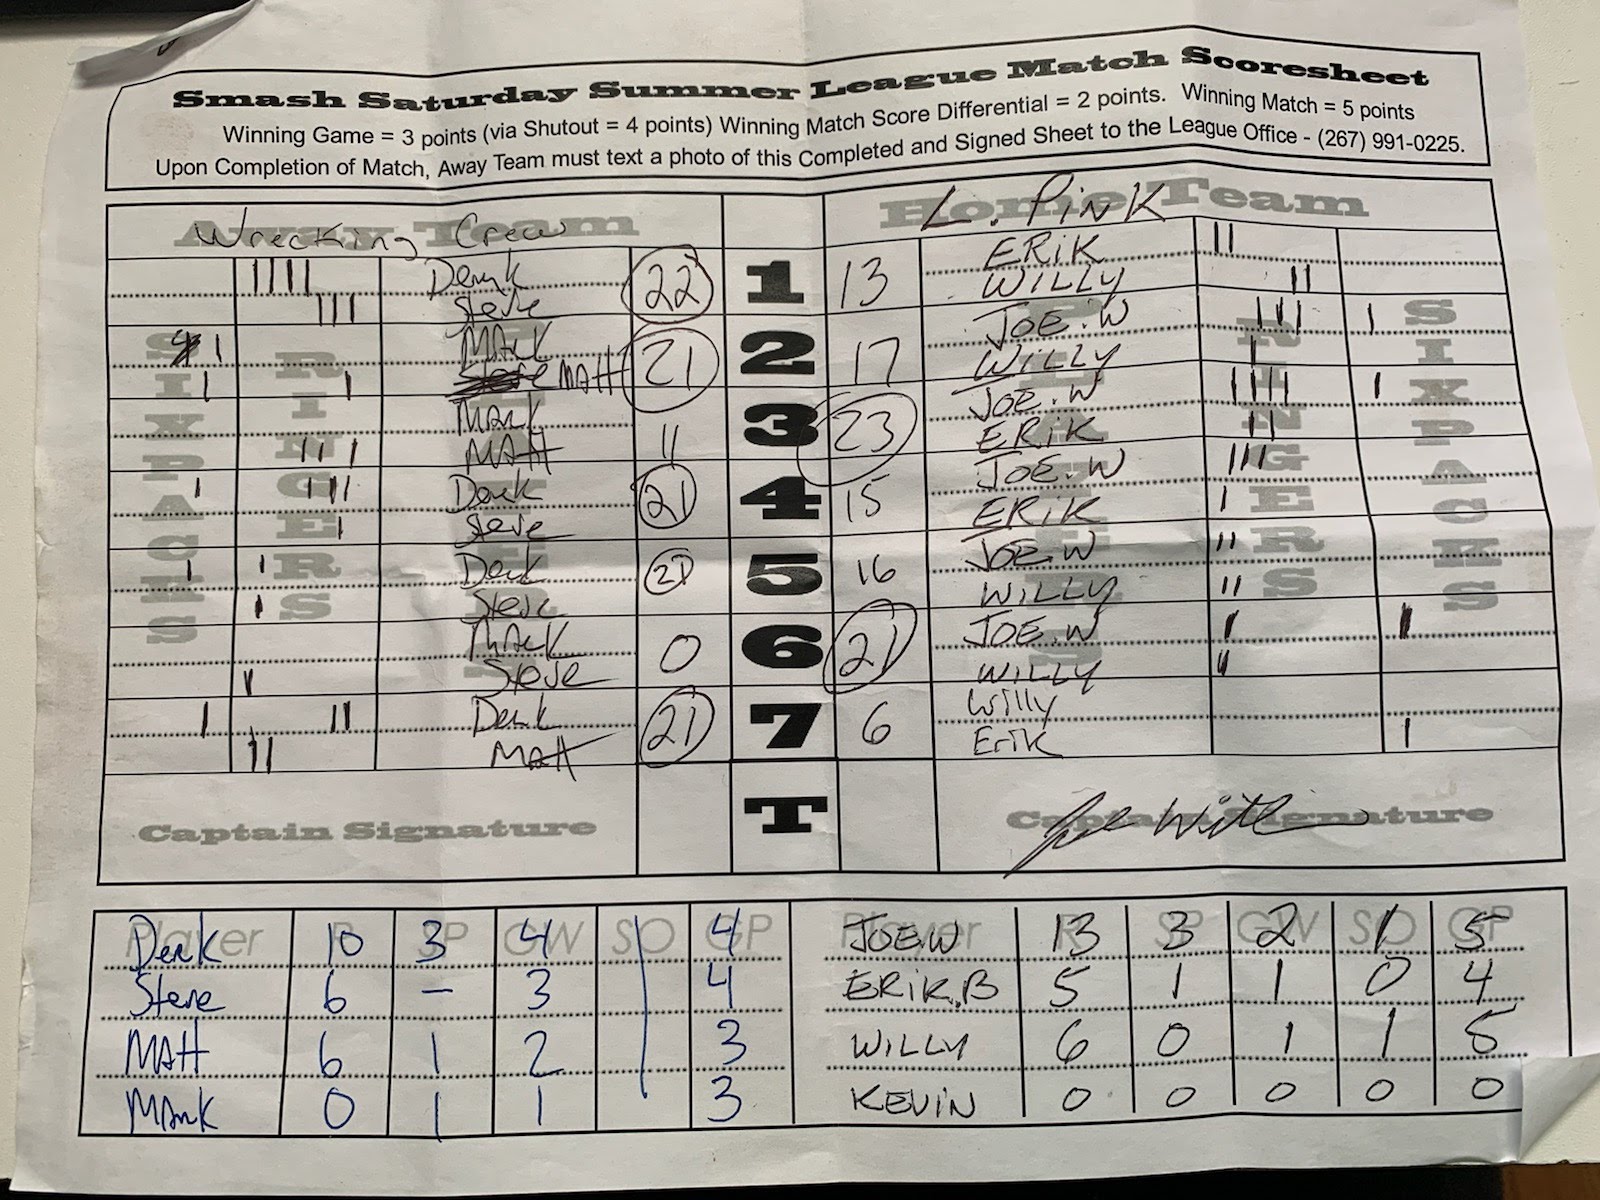 Smash Saturday Summer League Match Scoresheet
Winning Game = 3 points (via Shutout = 4 points) Winning Match Score Differential = 2 points. Winning Match = 5 points
Upon Completion of Match, Away Team must text a photo of this Completed and Signed Sheet to the League Office - (267) 991-0225.
Away Team Home Team
Wrecking Crew L. PINK
Deryk 22 1 13 ERIK
Steve WILLY
MARK 21 2 17 JOE.W
MATT WILLY
MARK 11 3 23 JOE.W
MATT ERIK
Derk 21 4 15 JOE.W
Steve ERIK
Derk 21 5 16 JOE.W
Steve WILLY
MARK 0 6 21 JOE.W
Steve WILLY
Derk 21 7 6 Willy
MATT Erik
SIXPACKS RINGERS RINGERS SIXPACKS
T
Captain Signature Captain Signature
Player R SP GW SO GP Player R SP GW SO GP
Derk 10 3 4 4 JOE.W 13 3 2 1 5
Steve 6 – 3 4 ERIK.B 5 1 1 0 4
MATT 6 1 2 3 WILLY 6 0 1 1 5
MARK 0 1 1 3 KEVIN 0 0 0 0 0